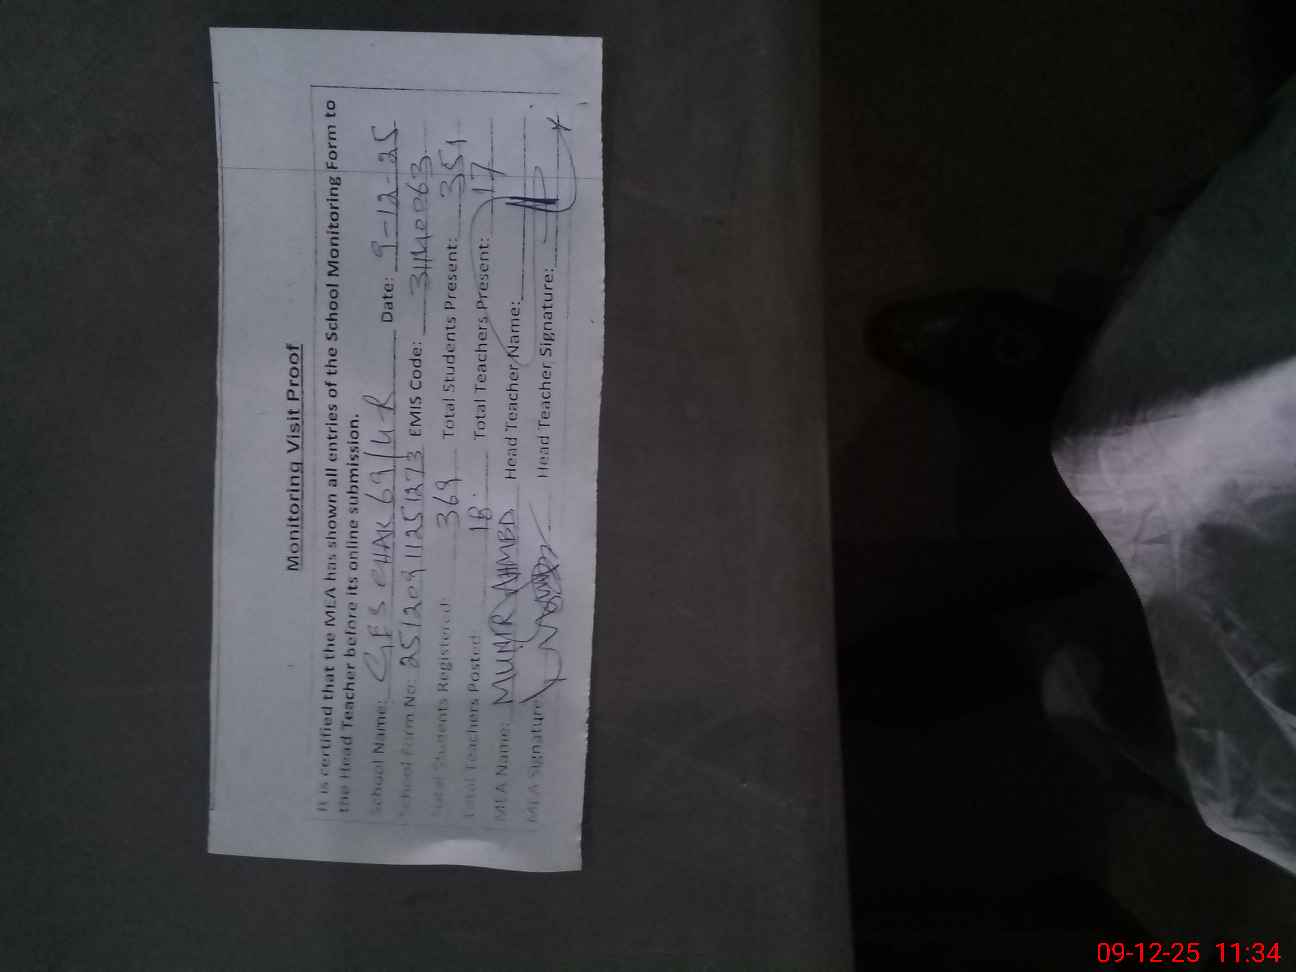 Monitoring Visit Proof
It is certified that the MEA has shown all entries of the School Monitoring Form to
the Head Teacher before its online submission.
School Name: GES CHAK 69/4-R Date: 9-12-25
School Form No: 25120911251273 EMIS Code:
Total Students Registered: 369 Total Students Present: 351
Total Teachers Posted: 18. Total Teachers Present: 17
MEA Name: MUNIR AHMED Head Teacher Name:
MEA Signature: Head Teacher Signature:
09-12-25 11:34